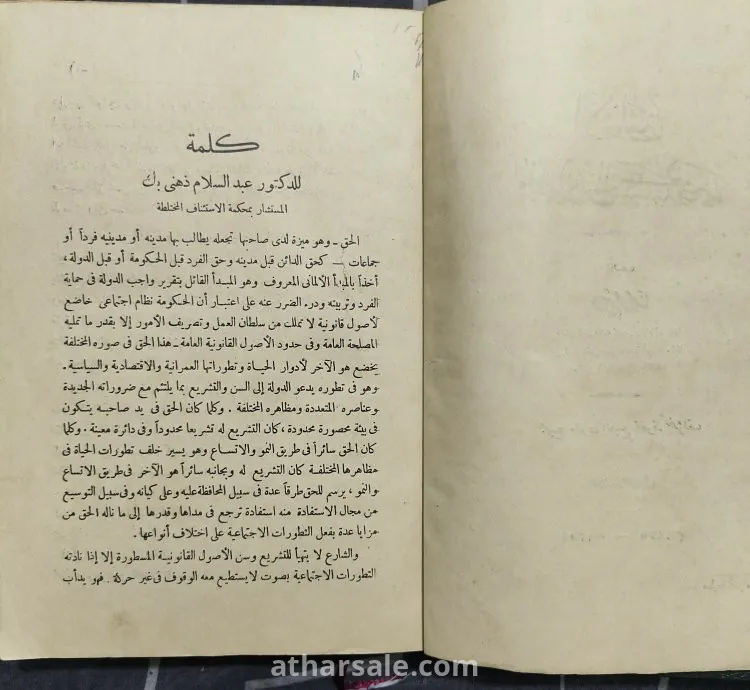 كلمة
للدكتور عبد السلام ذهنى بك
المستشار بمحكمة الاستئناف المختلطة
الحق - وهو ميزة لدى صاحبها تجعله يطالب بها مدينه أو مدينيه فرداً أو
جماعات — كحق الدائن قبل مدينه وحق الفرد قبل الحكومة أو قبل الدولة ،
أخذاً بالمبدأ الألمانى المعروف وهو المبدأ القائل بتقرير واجب الدولة فى حماية
الفرد وتربيته ودرء الضرر عنه على اعتبار أن الحكومة نظام اجتماعى خاضع
لأصول قانونية لا تملك من سلطان العمل وتصريف الأمور إلا بقدر ما تمليه
المصلحة العامة وفى حدود الأصول القانونية العامة - هذا الحق فى صوره المختلفة
يخضع هو الآخر لأدوار الحياة وتطوراتها العمرانية والاقتصادية والسياسية .
وهو فى تطوره يدعو الدولة إلى السن والتشريع بما يلتئم مع ضروراته الجديدة
وعناصره المتعددة ومظاهره المختلفة . وكلما كان الحق فى يد صاحبه يتكون
فى بيئة محصورة محدودة ، كان التشريع له تشريعا محدوداً وفى دائرة معينة . وكلما
كان الحق سائراً فى طريق النمو والاتساع وهو يسير خلف تطورات الحياة فى
مظاهرها المختلفة كان التشريع له وبجانبه سائراً هو الآخر فى طريق الاتساع
والنمو ، يرسم للحق طرقاً عدة فى سبيل المحافظة عليه وعلى كيانه وفى سبيل التوسيع
من مجال الاستفادة منه استفادة ترجع فى مداها وقدرها إلى ما ناله الحق من
مزايا عدة بفعل التطورات الاجتماعية على اختلاف أنواعها .
والشارع لا يتهيأ للتشريع وسن الأصول القانونية المسطورة إلا إذا نادته
التطورات الاجتماعية بصوت لا يستطيع معه الوقوف فى غير حركة . فهو يدأب
atharsale.com